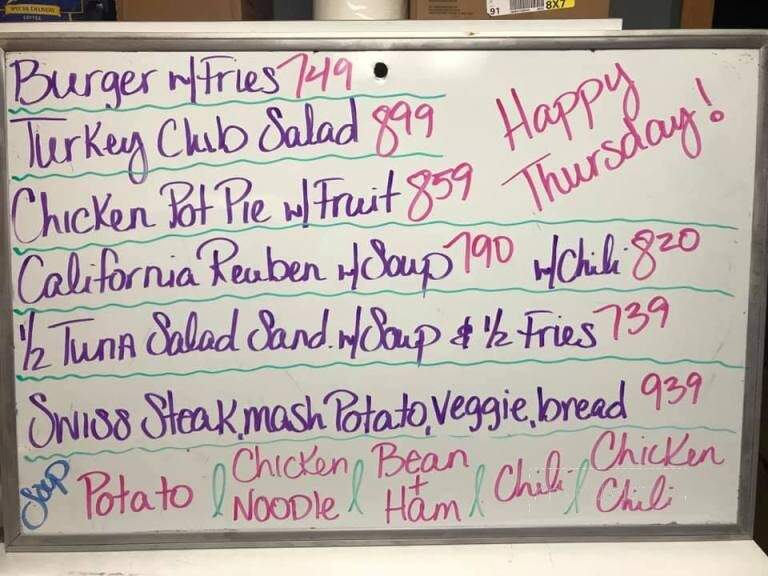 SPECIAL DELIVERY
COFFEE
91
8X7
Burger w/Fries 749
Happy Thursday!
Turkey Club Salad 899
Chicken Pot Pie w/Fruit 859
California Reuben w/Soup 790 w/Chili 820
1/2 Tuna Salad Sand. w/Soup & 1/2 Fries 739
Swiss Steak, mash Potato, Veggie, bread 939
Soup
Potato
Chicken
Noodle
Bean
+
Ham
Chili
Chicken
Chili